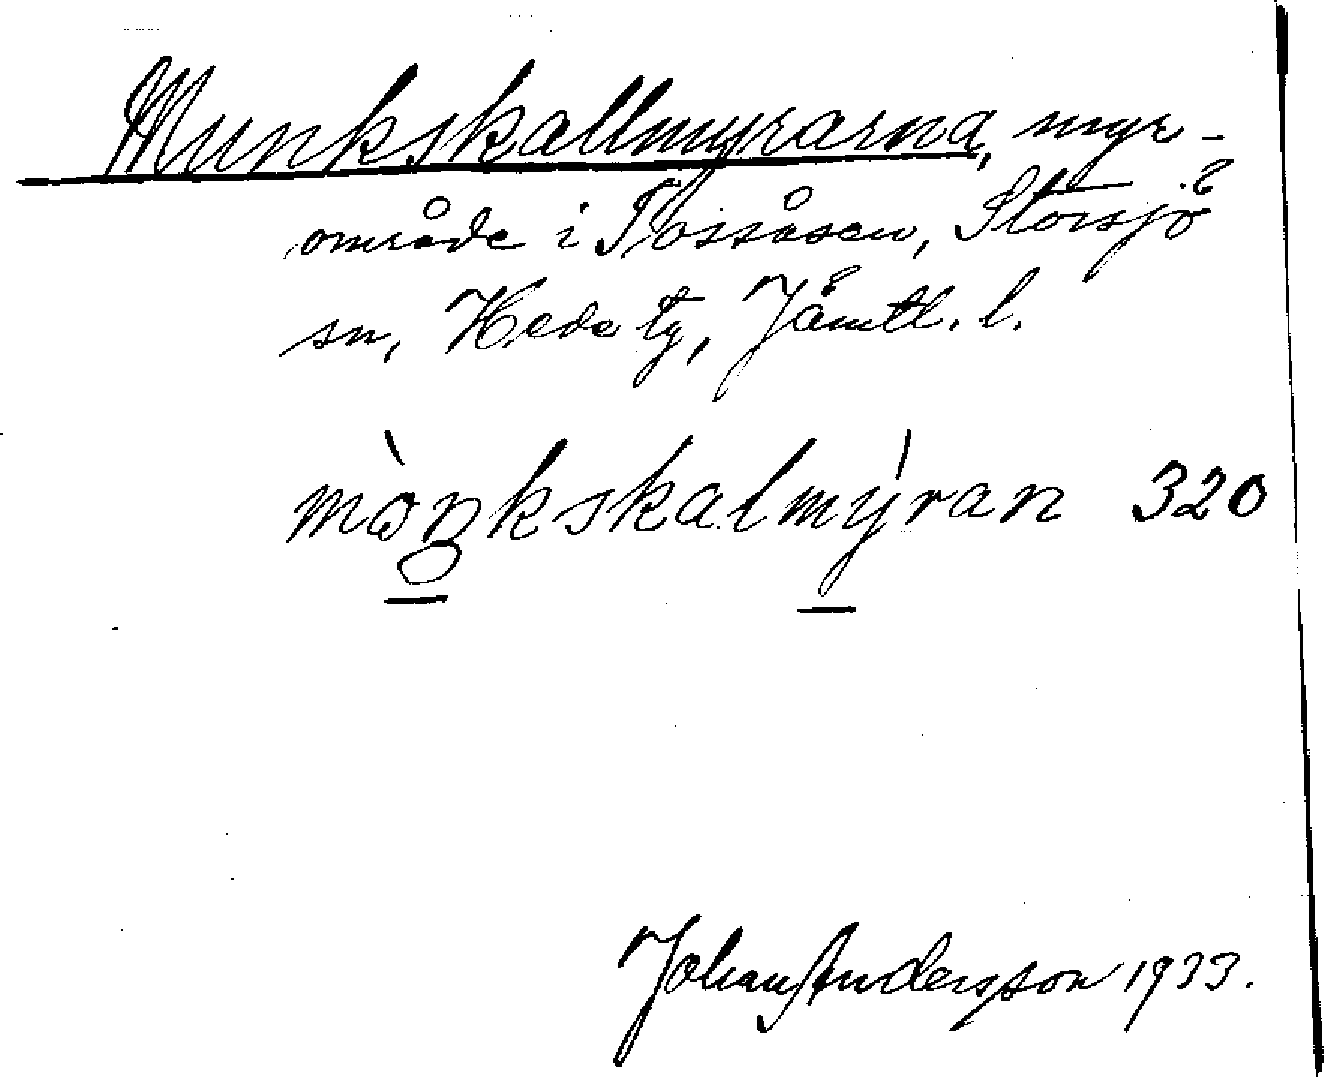 Munkskallmyrarna, myr-
område i Tossåsen, Storsjö
sn, Hede tg, Jämtl. l.
mòŋkskalmýran 320
Johan Andersson 1933.